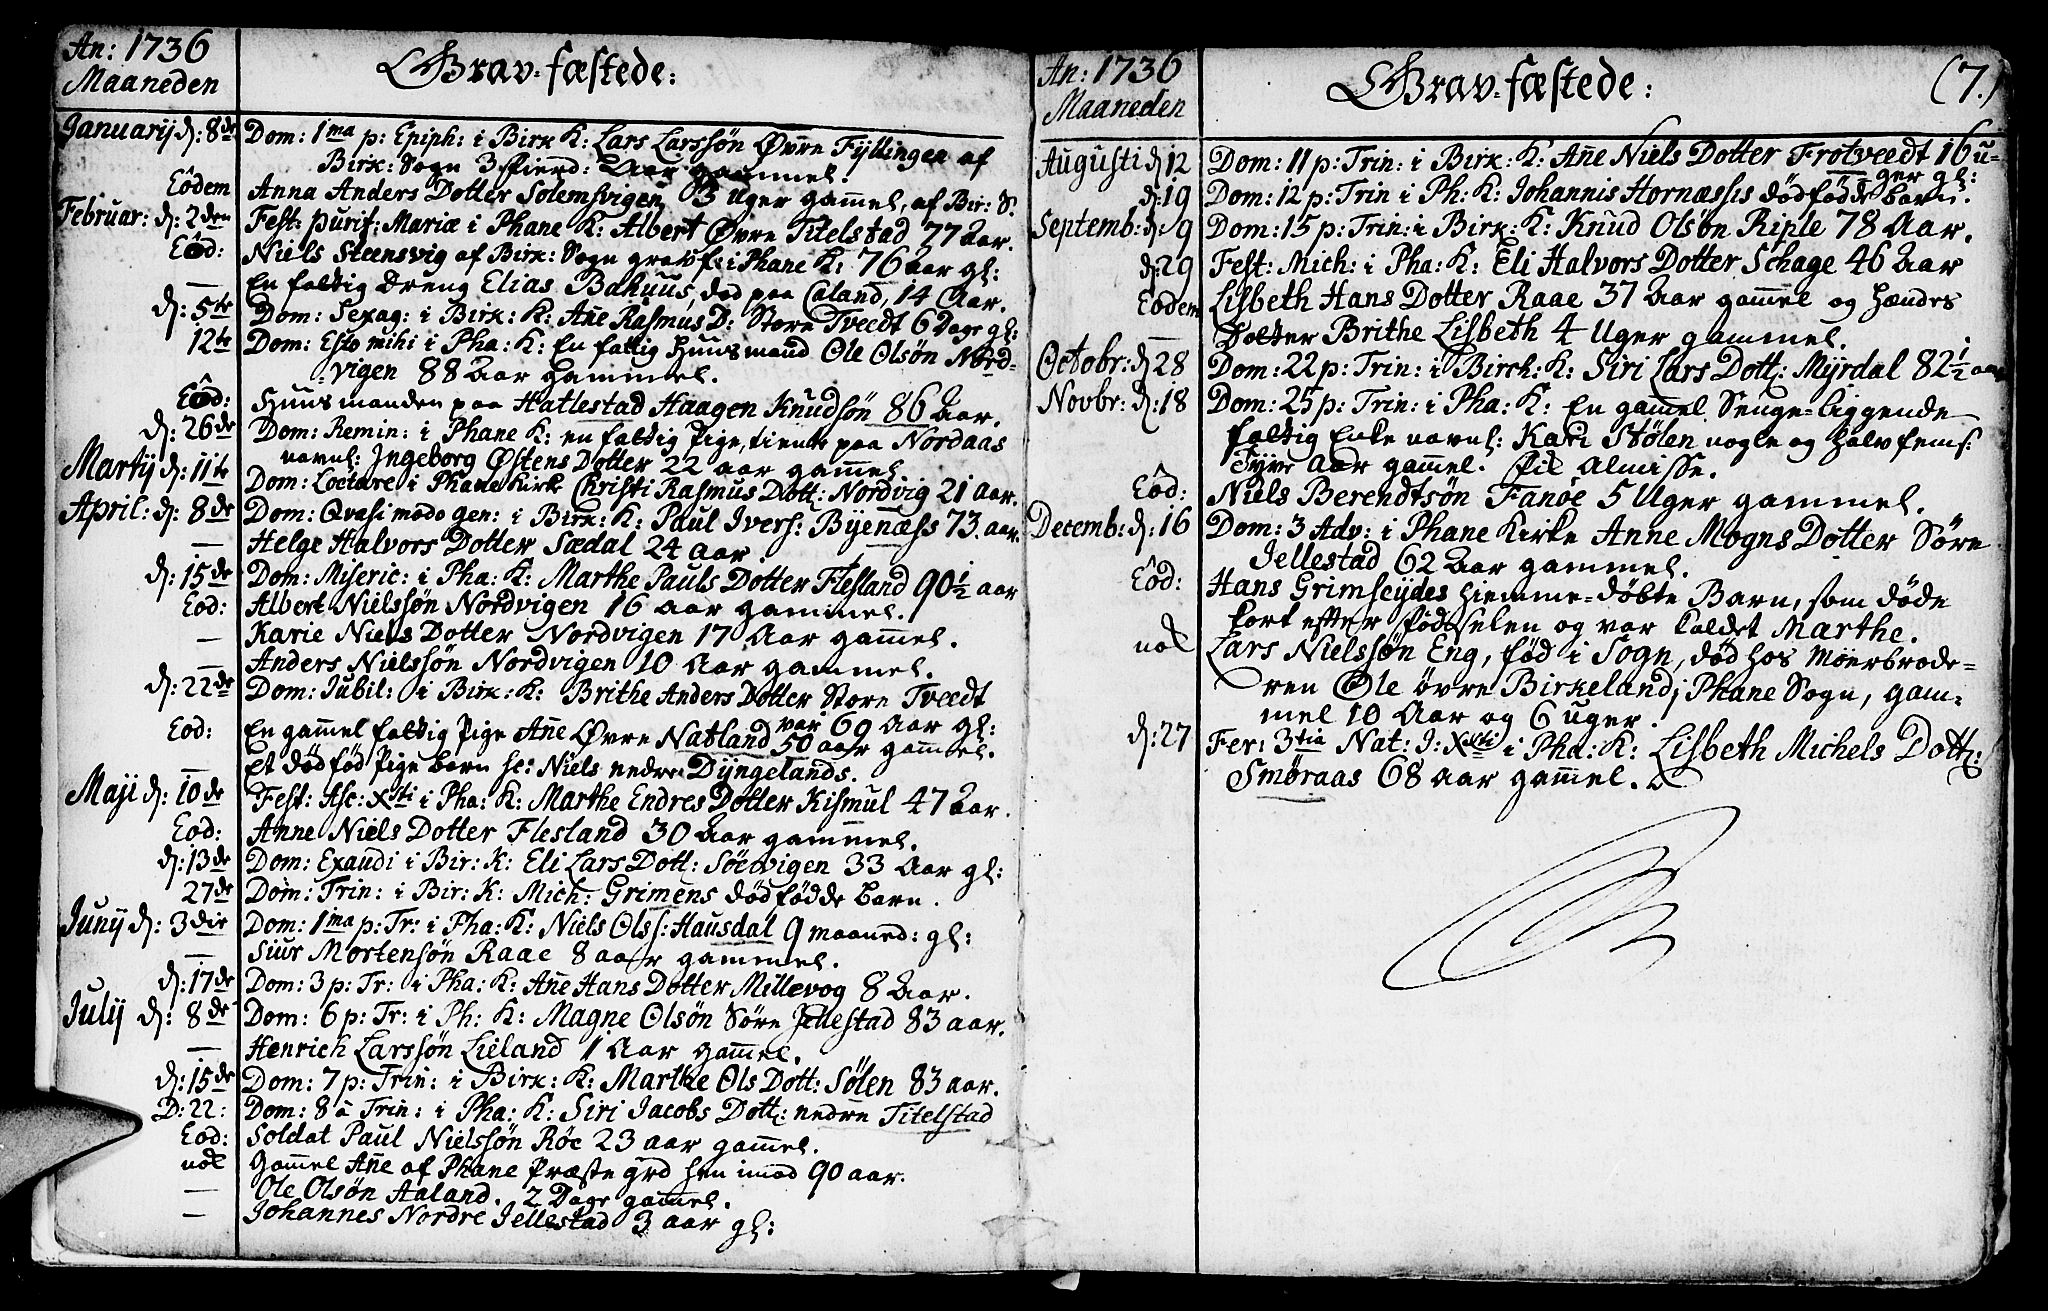 An: 1736
Maaneden
Grav-fæstede:
Januarij d: 8de Dom: 1ma p: Epiph: i Birk K: Lars Larssøn Øvre Fyllingen af
Birk: Sogn 3 fierd: Aar gammel.
Eôdem Anna Anders Dotter Solemsvigen 3 Uger gammel, af Bir: S.
Februar: d: 2den Fest: purif: Mariæ i Phane K: Albert Øvre Titelstad 77 Aar.
Eôd: Niels Steensvig af Birk: Sogn gravf: i Phane K: 76 Aar gl:
— En fattig Dreng Elias Bakuus, død paa Caland, 14 Aar.
d: 5te Dom: Sexag: i Birk: K: Añe Rasmus D: Store Tveedt 6 Dage gl:
12te Dom: Esto mihi i Pha: K: En fattig Huusmand Ole Olsøn Nord=
=vigen 88 Aar Gammel.
Eôd: Huusmanden paa Hatlestad Haagen Knudsøn 86 Aar.
d: 26de Dom: Remin: i Phane K: en fattig Pige, tient paa Nordaas
navnl: Ingeborg Østens Dotter 22 aar gam̃el.
Martij d: 11te Dom: Lœtare i Phane Kirk Christi Rasmus Dott: Nordvig 21 aar.
April: d: 8de Dom: Qvasimodo gen: i Birk: K: Paul Ivers: Byenæss 73. aar.
— Helge Halvors Dotter Sædal 24 aar.
d: 15de Dom: Miseric: i Pha: K: Marthe Pauls Dotter Flesland 90½ aar
Eod: Albert Nielssøn Nordvigen 16 aar gammel.
— Karie Niels Dotter Nordvigen 17 Aar gam̃el.
Anders Nielssøn Nordvigen 10 Aar gam̃el.
d: 22de Dom: Jubil: i Birk: K: Brithe Anders Dotter Store Tveedt
var 69 Aar gl:
Eod: En gam̃el fattig Pige Añe Øvre Natland 50 aar gam̃el.
— Et dødfød Pige barn hr: Niels nedre Dyngelands.
Maji d: 10de Fest: Asc: Xsti i Pha: K: Marthe Endres Dotter Kismul 47 Aar.
Eod: Anne Niels Dotter Flesland 30 Aar gammel.
d: 13de Dom: Exaudi i Bir: K: Eli Lars Dott: Søevigen 33 Aar gl:
27de Dom: Trin: i Bir: K: Mich: Grimens dødfødde barn.
Junij d: 3die Dom: 1ma p: Tr: i Pha: K: Niels Olss: Hausdal 9 maaned: gl:
— Siur Mortensøn Raae 8 aar gammel.
d: 17de Dom: 3 p: Tr: i Pha: K: Añe Hans Dotter Millevog 8 Aar.
Julij d: 8de Dom: 6 p: Tr: i Ph: K: Magne Olsøn Søre Jellestad 83 aar.
— Henrich Larssøn Lieland 1 Aar gam̃el.
d: 15de Dom: 7 p: Trin: i Birk: K: Marthe Ols Dott: Sølen 83 aar.
D: 22: Dom: 8 â Trin: i Pha: K: Siri Jacobs Dott: nedre Titelstad
Eod: Soldat Paul Nielssøn Røe 23 aar gam̃el.
nok Gam̃el Añe af Phane Præstegrd hen imod 90 aar.
— Ole Olsøn Aaland. 2 Dage gam̃el.
— Johannes Nordre Jellestad 3 aar gl:
An: 1736
Maaneden
Grav-fæstede:
(7.)
Augusti d: 12 Dom: 11 p: Trin: i Birk: K: Añe Niels Dotter Frotveedt 16 u-
ger gl:
d: 19 Dom: 12 p: Trin i Ph: K: Johannis Hornæssis dødfødde barn.
Septemb: d: 9 Dom: 15 p: Trin: i Birk: K: Knud Olsøn Riple 78 Aar.
d: 29 Fest: Mich: i Pha: K: Eli Halvors Dotter Schage 46 Aar
Eodem Lisbeth Hans Dotter Raae 37 Aar gam̃el og hendes
Dotter Brithe Lisbeth 4 Uger gammel.
Octobr: d: 28 Dom: 22 p: Trin: i Birch: K: Siri Lars Dott: Myrdal 82½ aar
Novbr: d: 18 Dom: 25 p: Trin: i Pha: K: En gam̃el Senge-liggende
fattig Enke navnl: Kari Stølen nogle og halvfems:
Tyve Aar gam̃el. fik Almisse.
Eôd: Niels Berendtsøn Fanøe 5 Uger gammel.
Decemb: d: 16 Dom: 3 Adv: i Phane Kirke Anne Mogns Dotter Søre
Jellestad 62 Aar gammel.
Eôd: Hans Grimseydes hiemme-døbte Barn, som døde
kort efter Fødsselen og var kaldet Marthe.
nok Lars Nielssøn Eng, fød i Sogn, død hos Moerbrode-
ren Ole øvre Birkeland i Phane Sogn, gam-
mel 10 Aar og 6 uger.
d: 27 Fer: 3tia Nat: J: Xsti i Pha: K: Lisbeth Michels Dott:
Smøraas 68 aar gam̃el.